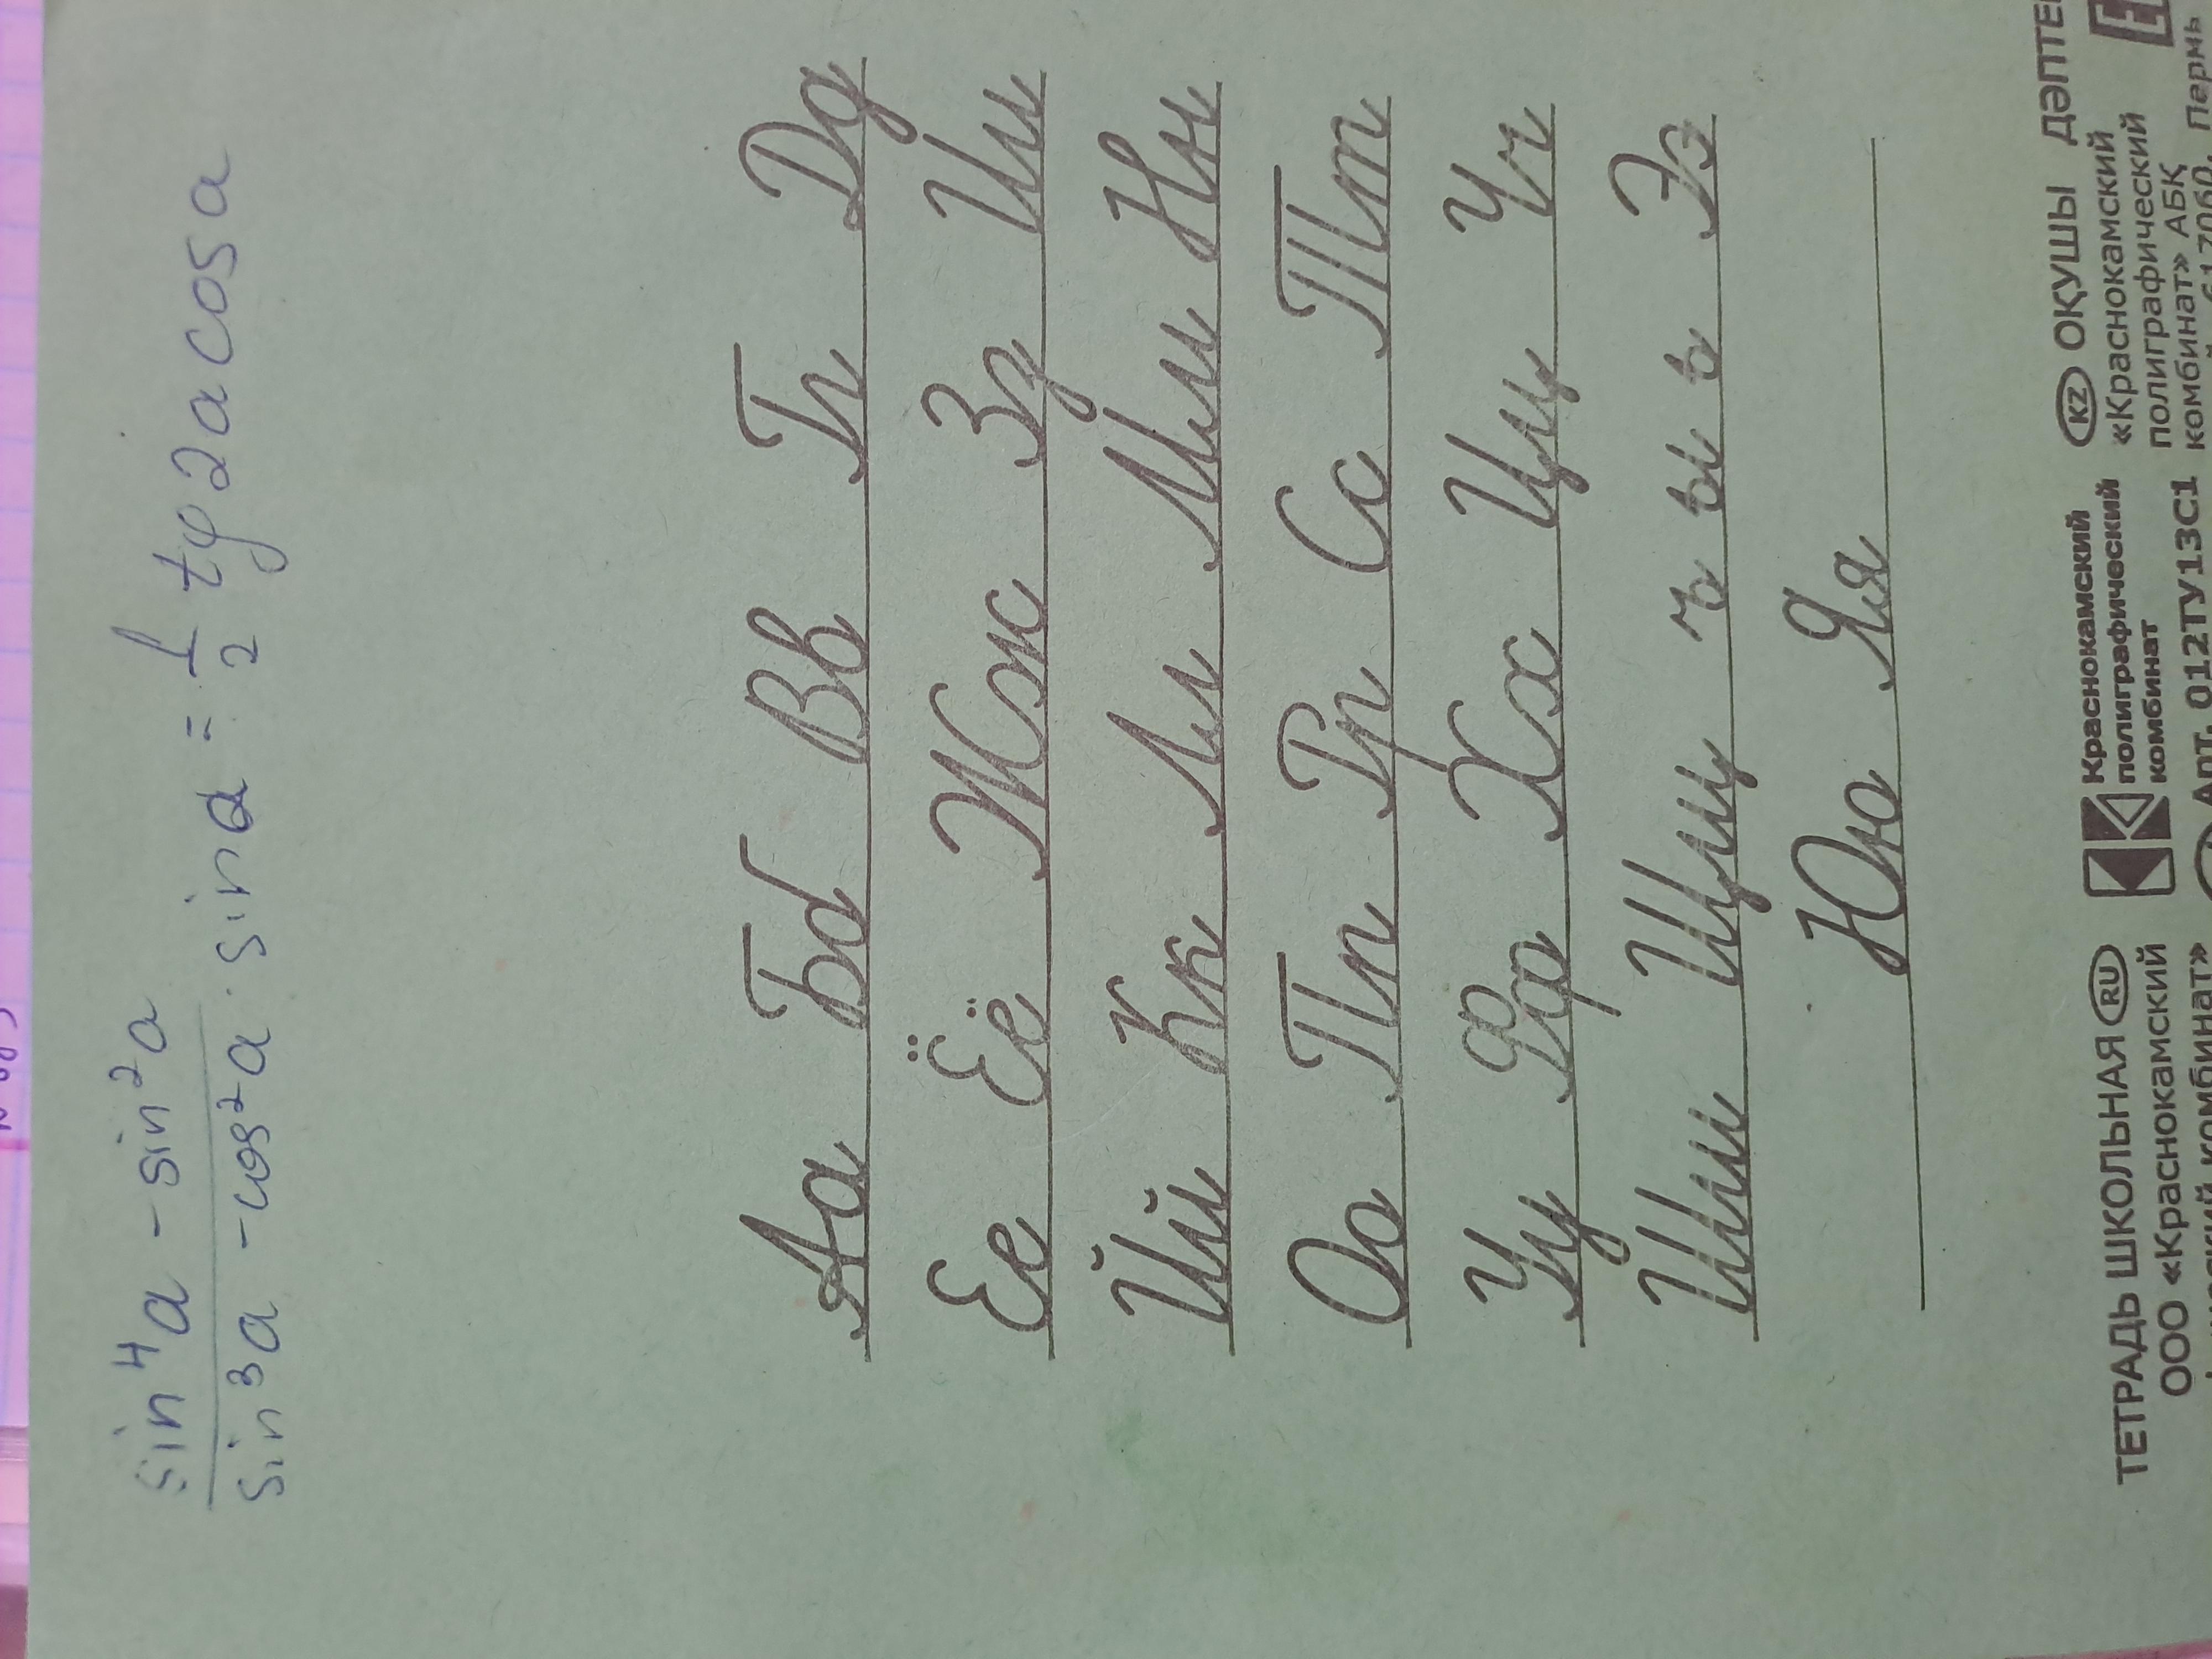 sin⁴a - sin²a
sin³a - cos²a · sin a = 1/2 tg 2a cos a
Аа Бб Вв Гг Дд
Ее Ёё Жж Зз Ии
Йй Кк Лл Мм Нн
Оо Пп Рр Сс Тт
Уу Фф Хх Цц Чч
Шш Щщ ъ ы ь Ээ
Юю Яя
ТЕТРАДЬ ШКОЛЬНАЯ RU
ООО «Краснокамский
Краснокамский
полиграфический
комбинат
Арт. 012ТУ13С1
KZ ОҚУШЫ
«Краснокамский
полиграфический
комбинат» АБҚ
Пермь